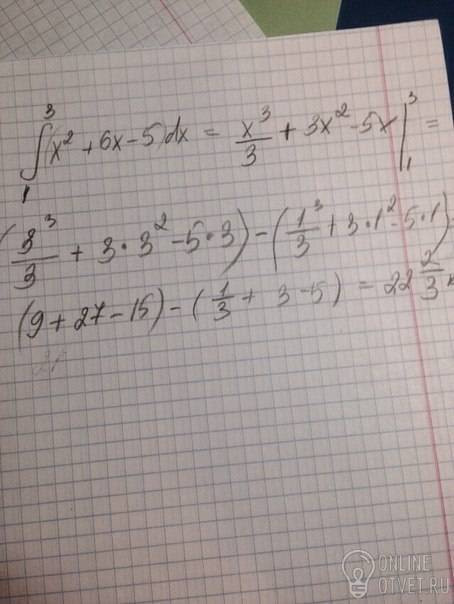 ∫₁³(x² + 6x - 5)dx = x³/3 + 3x² - 5x |₁³ =
(3³/3 + 3·3² - 5·3) - (1³/3 + 3·1² - 5·1)
(9 + 27 - 15) - (1/3 + 3 - 5) = 22 2/3
ONLINE
OTVET.RU